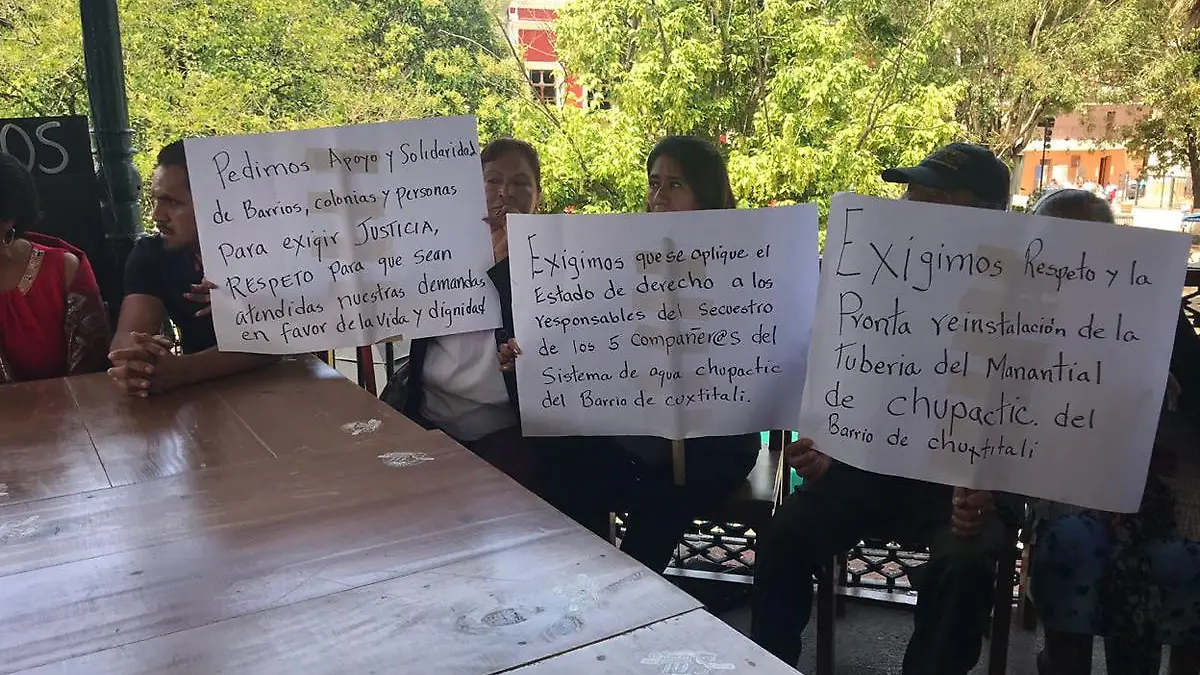 OS
Pedimos Apoyo y Solidaridad
de Barrios, colonias y personas
para exigir JUSTICIA,
RESPETO para que sean
atendidas nuestras demandas
en favor de la vida y dignidad
Exigimos que se aplique el
Estado de derecho a los
responsables del Secuestro
de los 5 compañer@s del
Sistema de agua chupactic
del Barrio de cuxtitali.
Exigimos Respeto y la
Pronta reinstalación de la
Tuberia del Manantial
de chupactic. del
Barrio de chuxtitali